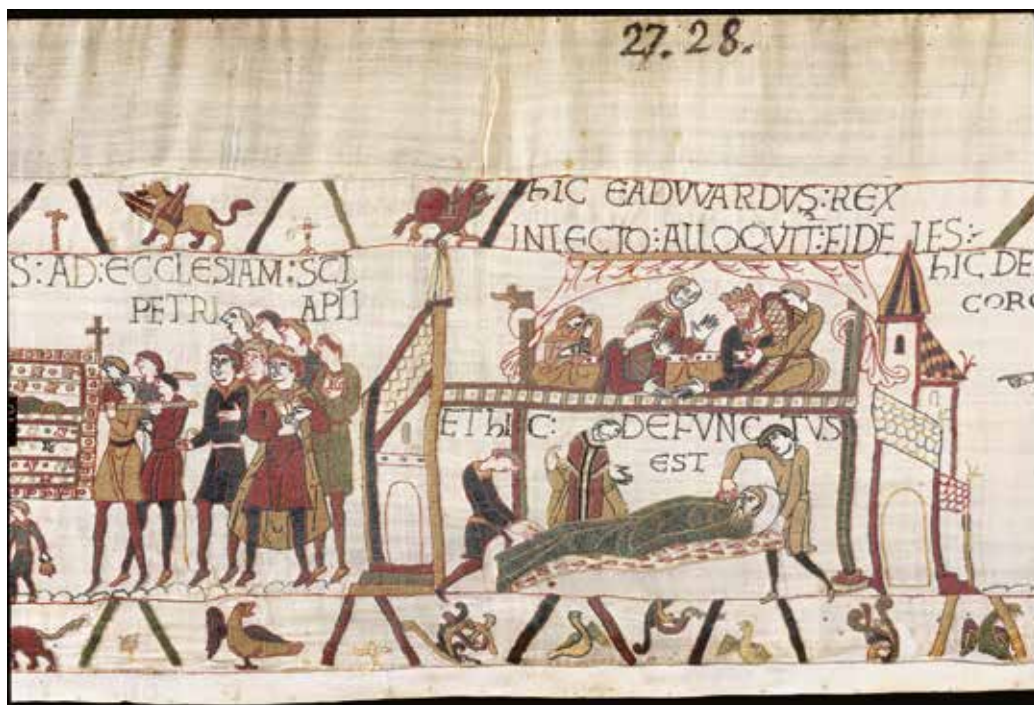 27. 28.
hIC EADVVARDVS:REX
INLECTO:ALLOQVIT:FIDELES:
S:AD:ECCLESIAM:SCI
PETRI APLI
hIC DE
CORO
ET hIC: DEFVNCTVS
EST